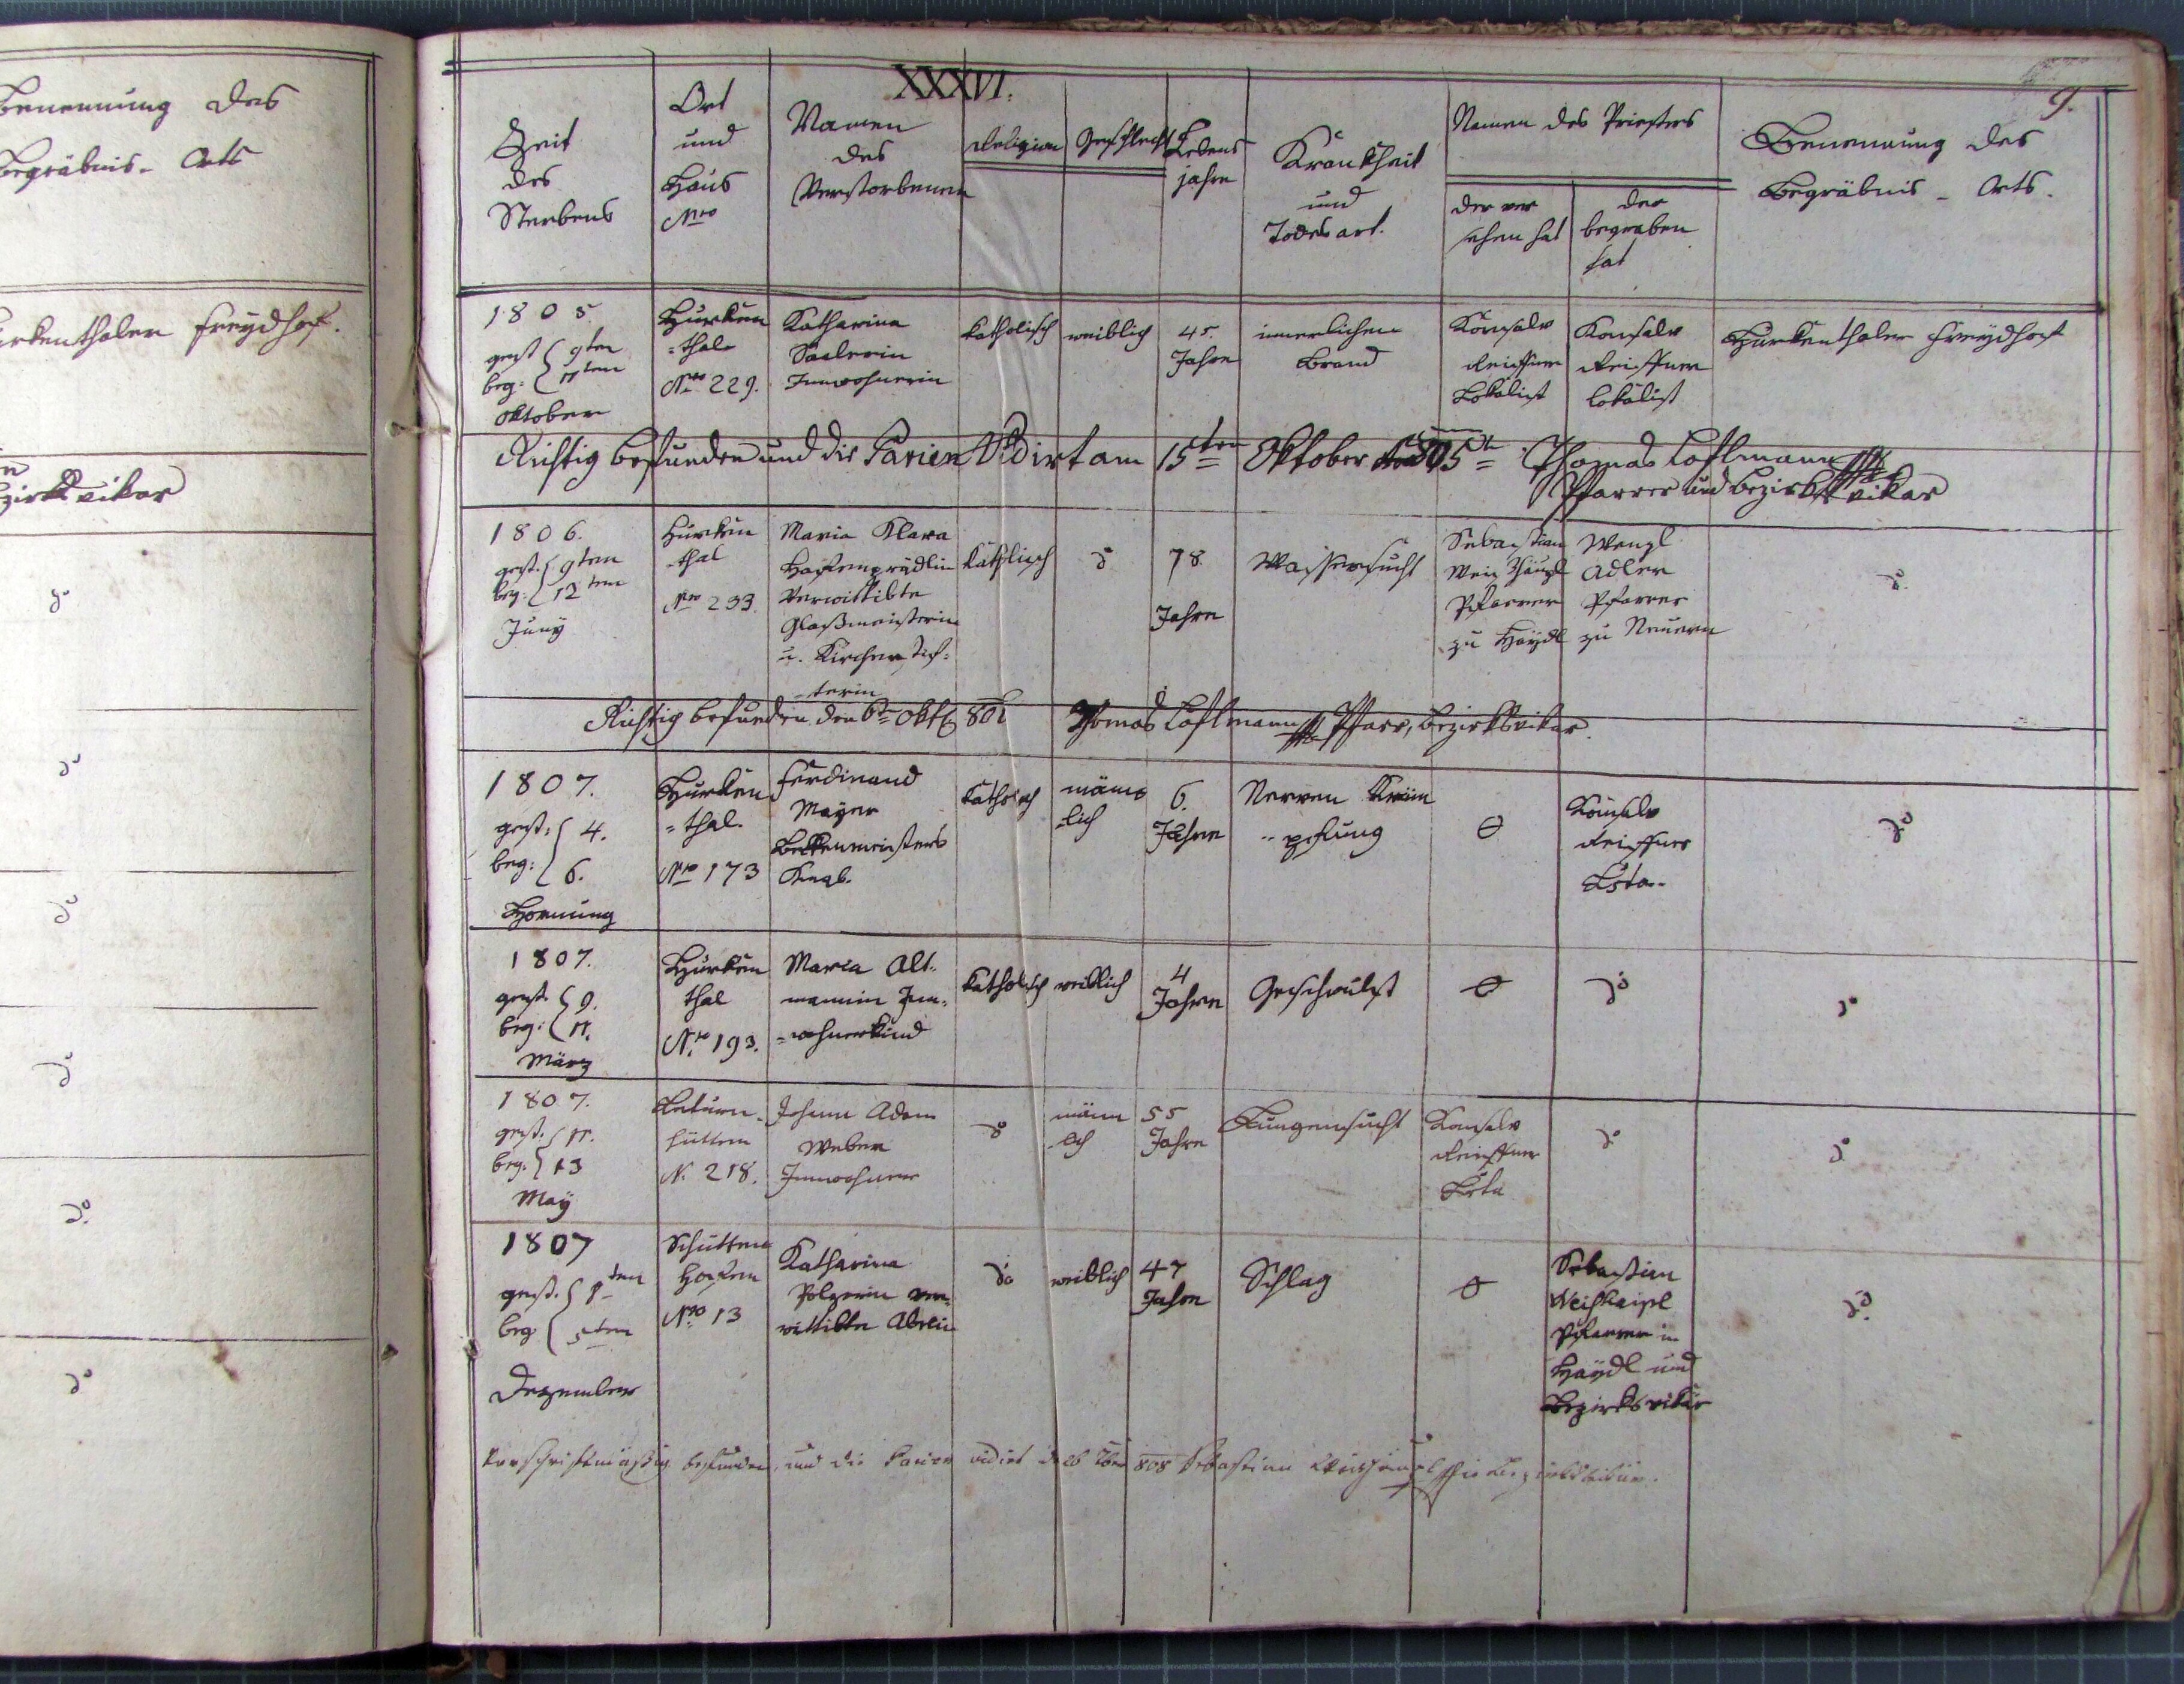 Benennung des
Begräbnis- Orts
Freydhof.
Bezirksvikar
do
do
do
do
do
do
XXXVI.
9.
Zeit
des
Sterbens
Ort
und
Haus
Nro
Namen
des
Verstorbenen
Religion
Geschlecht
Lebens
jahre
Krankheit
und
Todesart.
Namen des Priesters
der ver
sehen hat
der
begraben
hat
Benennung des
Begräbnis - Orts.
1805
gest { 9ten
beg: { 11ten
Oktober
Hurken
=thal
Nro 229.
Katharina
Inwohnerin
katholisch
weiblich
45.
Jahre
innerlichen
Brand
Konsalv
Lokalist
Konsalv
Lokalist
Hurkenthaler Freydhof
Richtig befunden und die Parien Vidirt am 15ten Oktober 805 Thomas
Pfarrer und Bezirksvikar
1806.
gest. { 9ten
beg: { 12ten
Juny
Hurken
-thal
Nro 233.
Maria Klara
Verwittibte
Glaßmeisterin
u. Kirchenstif=
-terin
katholisch
do
78.
Jahre
Wassersucht
Sebastian
Pfarrer
zu Haydl
Wenzl
Adler
Pfarrer
zu Neuern
do.
Richtig befunden den 6ten Thomas Pfarr, Bezirksvikar.
1807.
gest: { 4.
beg: { 6.
Hornung
Hurken
=thal.
Nro 173
Ferdinand
Mayer
Knab.
katholisch
männ
-lich
6.
Jahre
Nerven Kräm
-pfung
Konsalv
do
1807.
gest. { 9.
beg: { 11.
März
Hurken
thal
Nro 193.
Maria Alt-
mannin Inn-
=wohnerkind
katholisch
weiblich
4
Jahre
Geschwulst
do
do
1807.
gest. { 11.
beg. { 13
May
hütten
N. 218.
Johann Adam
Weber
Innwohner
do
männ
-lich
55
Jahre
Lungensucht
Konsalv
do
do
1807
gest. { 1ten
beg { 5ten
Dezember
Schütten
hofen
Nro 13
Katharina
Polzerin ver-
wittibte
do
weiblich
47
Jahre
Schlag
Sebastian
Pfarrer in
Haydl und
Bezirksvikär
do.
Vorschriftmässig befunden, und die Parien vidirt 808 Sebastian